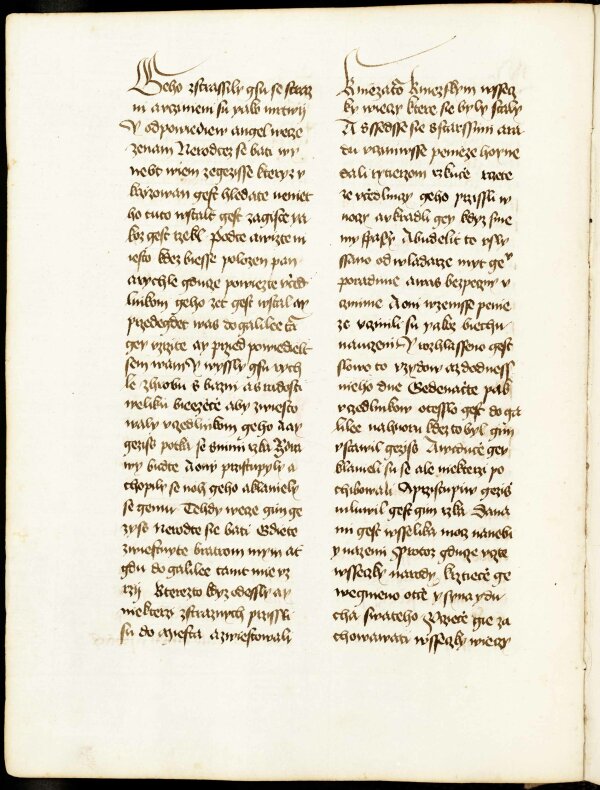 Geho zstrassily gsu se straz
ni a vczineni su yako mrtwij
Y odpowiediew angel wece
zenam Nerodtez se bati wy
nebt wiem zegezisse kteryz v
krzyzowan gest hledate neniet
ho tuto wstalt gest zagiste ya
koz gest rzekl Podte a wizte m
iesto kdez biesse polozen pan
a rychle gduce powiezte vczed
lnikom geho zet gest wstal ay
przedegdet was do galilee ta
gey vzrzite ay przed powiediel
sem wam Y wyssly gsu rych
le z hrobu s bazni a s radosti
weliku biezece aby zwiesto
waly vczedlnikom geho A ay
geziss potka se s nimi rzka Zdra
wy budte A ony przistupyly a
chopily se noh geho a klaniely
se gemu Tehdy wece gim ge
zyss Nerodte sie bati Gdiete
zwiestuyte bratrom mym at
gdu do galilee tamt mie vz
rzij Kterezto kdyz odessly ay
niekterzy z straznych prissli
su do miesta a zwiestowali
kniezato kniezskym wssecz
ky wieczy ktere se byly staly
A ssedsse sie s starssimi a ra
du vcziniwsse penieze hoyne
dali rytierzom rzkuce rcete
ze vczedlnicy geho prissli w
nocy a vkradli gey kdyz sme
my spaly A budelit to vsly
ssano od wladarze myt ge
poradime a was bezpeczny v
czinime A oni wzemsse penie
ze vczinili su yakz biechu
nauczeni Y rozhlasseno gest
slowo to v zydow az do dness
nieho dne Gedenacte pak
vczedlnikow otesslo gest do ga
lilee na horu kdezto byl gim
vstawil geziss A vzrzewsse gey
klaneli su se ale niekterzi po
chibowali A przistupiw geziss
mluwil gest gim rzka Dana
mi gest wsselika mocz na nebi
y na zemi Protoz gduce vczte
wsseczky narody krztiece ge
we gmeno otce y syna y du
cha swateho Vczece gie za
chowawati wsseczky wieczy